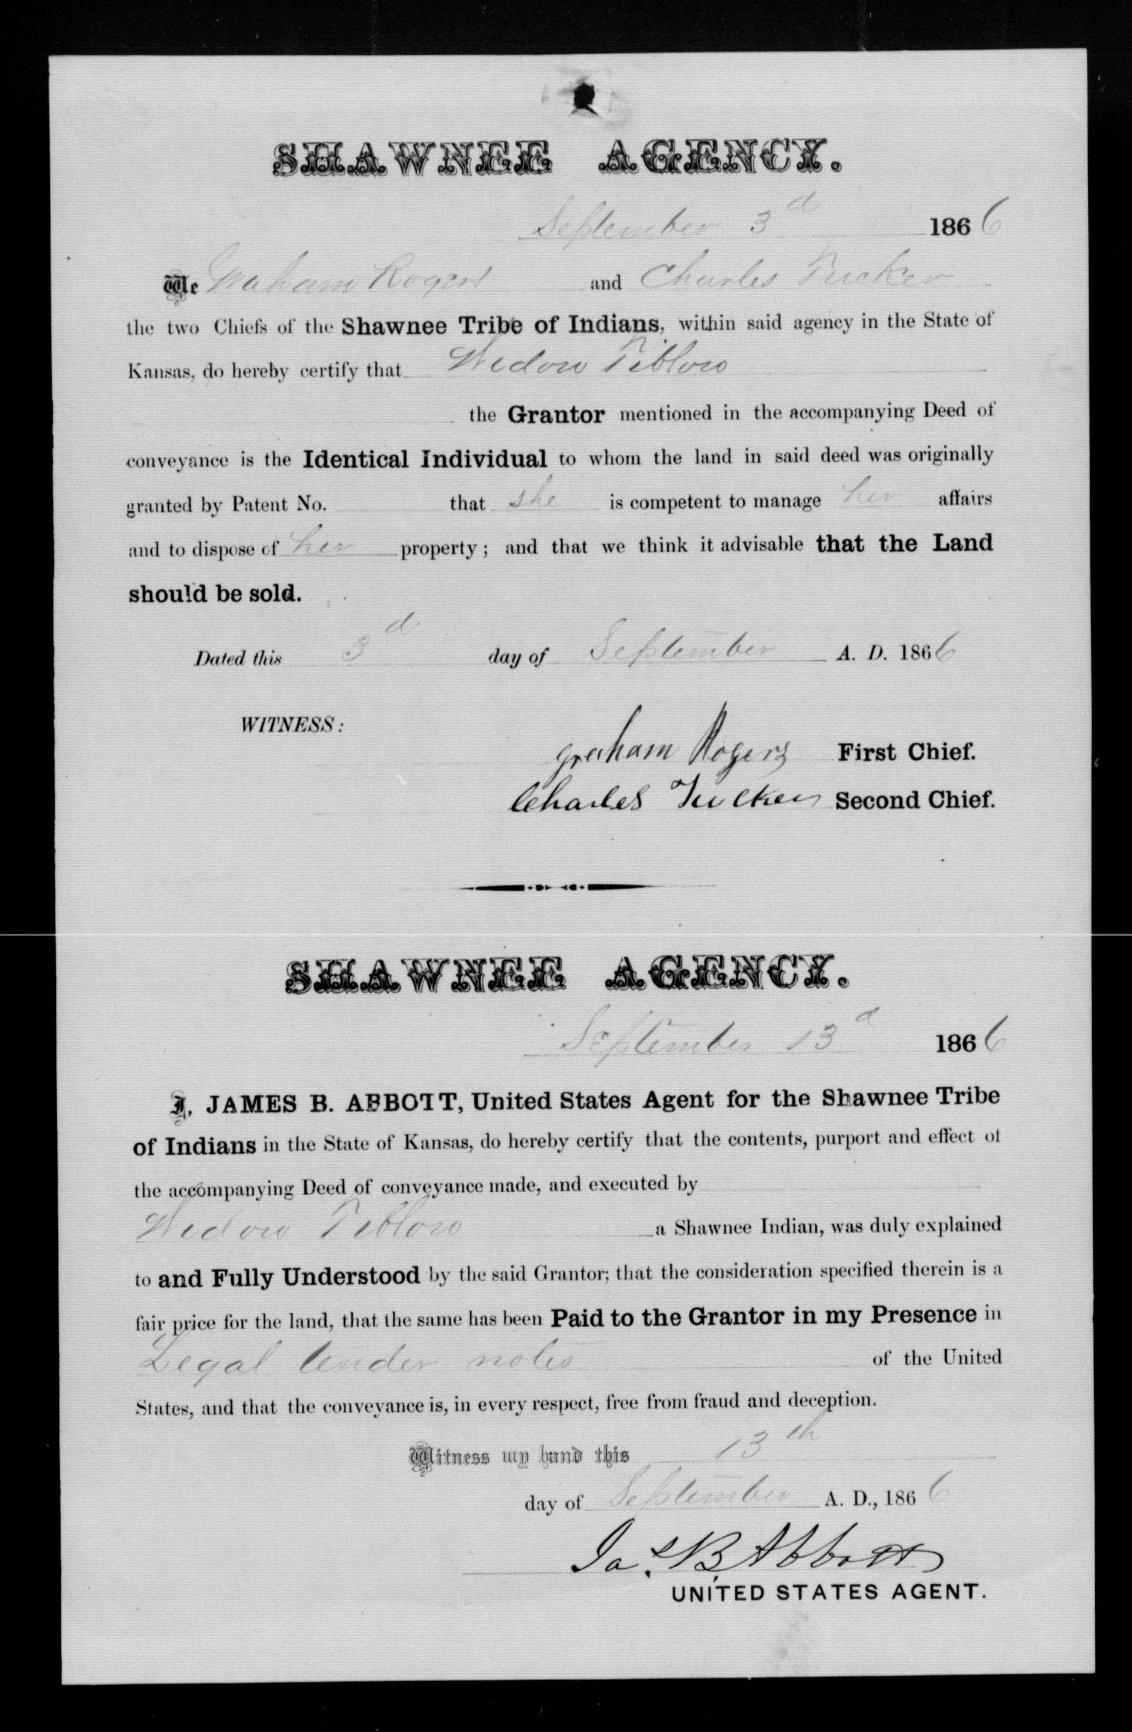 SHAWNEE AGENCY.
September 3d 1866
We Graham Rogers and Charles Tucker
the two Chiefs of the Shawnee Tribe of Indians, within said agency in the State of
Kansas, do hereby certify that Widow Tiblow
the Grantor mentioned in the accompanying Deed of
conveyance is the Identical Individual to whom the land in said deed was originally
granted by Patent No. that she is competent to manage her affairs
and to dispose of her property; and that we think it advisable that the Land
should be sold.
Dated this 3d day of September A. D. 1866
WITNESS:
graham Rogers First Chief.
Charles Tucker Second Chief.
SHAWNEE AGENCY.
September 13d 1866
I, JAMES B. ABBOTT, United States Agent for the Shawnee Tribe
of Indians in the State of Kansas, do hereby certify that the contents, purport and effect of
the accompanying Deed of conveyance made, and executed by
Widow Tiblow a Shawnee Indian, was duly explained
to and Fully Understood by the said Grantor; that the consideration specified therein is a
fair price for the land, that the same has been Paid to the Grantor in my Presence in
Legal tender notes of the United
States, and that the conveyance is, in every respect, free from fraud and deception.
Witness my hand this 13th
day of September A. D., 1866
Jas. B. Abbott
UNITED STATES AGENT.